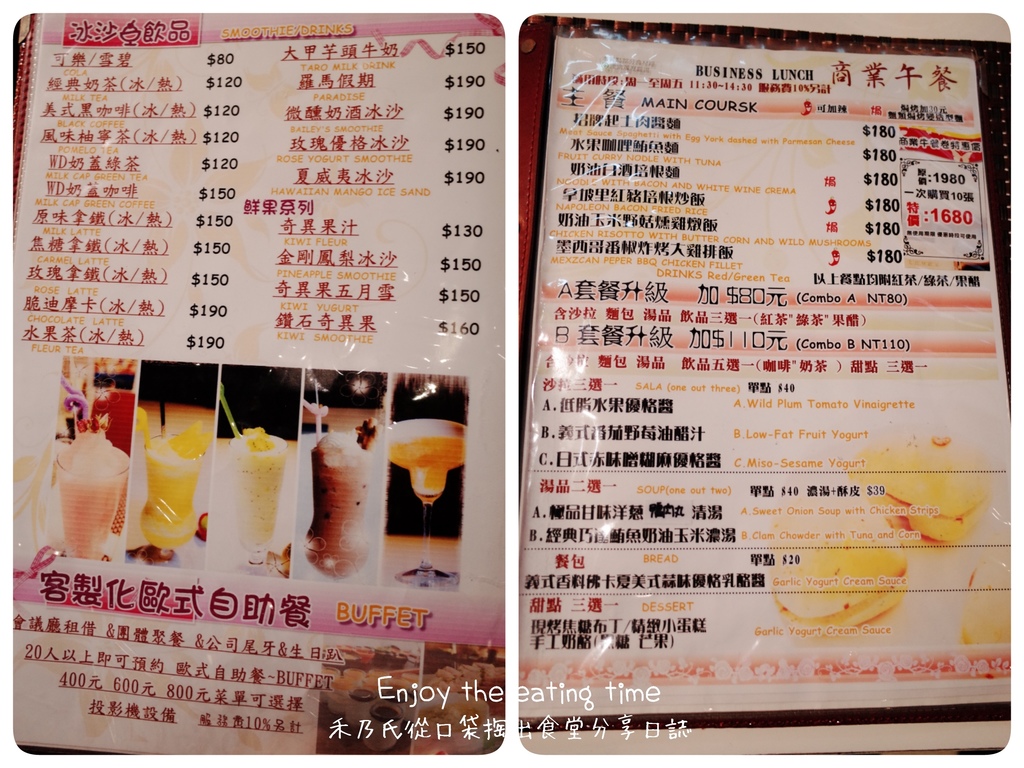 冰沙&飲品 SMOOTHIE/DRINKS
可樂/雪碧 $80
COLA
經典奶茶(冰/熱) $120
MILK TEA
美式黑咖啡(冰/熱) $120
BLACK COFFEE
風味柚寧茶(冰/熱) $120
POMELO TEA
WD奶蓋綠茶 $120
MILK CAP GREEN TEA
WD奶蓋咖啡 $150
MILK CAP GREEN COFFEE
原味拿鐵(冰/熱) $150
MILK LATTE
焦糖拿鐵(冰/熱) $150
CARMEL LATTE
玫瑰拿鐵(冰/熱) $150
ROSE LATTE
脆迪摩卡(冰/熱) $190
CHOCOLATE LATTE
水果茶(冰/熱) $190
FLEUR TEA
大甲芋頭牛奶 $150
TARO MILK DRINK
羅馬假期 $190
PARADISE
微醺奶酒冰沙 $190
BAILEY'S SMOOTHIE
玫瑰優格冰沙 $190
ROSE YOGURT SMOOTHIE
夏威夷冰沙 $190
HAWAIIAN MANGO ICE SAND
鮮果系列
奇異果汁 $130
KIWI FLEUR
金剛鳳梨冰沙 $150
PINEAPPLE SMOOTHIE
奇異果五月雪 $150
KIWI YUGURT
鑽石奇異果 $160
KIWI SMOOTHIE
客製化歐式自助餐 BUFFET
會議廳租借 &團體聚餐 &公司尾牙&生日趴
20人以上即可預約 歐式自助餐~BUFFET
400元 600元 800元菜單可選擇
投影機設備 服務費10%另計
BUSINESS LUNCH 商業午餐
週一至周五 11:30~14:30 服務費10%另計
主餐 MAIN COURSK 可加辣 焗 焗烤加30元
招牌起士肉醬麵 $180
Meat Sauce Spaghetti with Egg York dashed with Parmesan Cheese
水果咖哩鮪魚麵 $180
FRUIT CURRY NODLE WITH TUNA
奶油白酒培根麵 焗 $180
NOODLE WITH BACON AND WHITE WINE CREMA
拿坡里紅豬培根炒飯 $180
NAPOLEON BACON FRIED RICE
奶油玉米野菇燻雞燉飯 焗 $180
CHICKEN RISOTTO WITH BUTTER CORN AND WILD MUSHROOMS
墨西哥番椒炸烤大雞排飯 $180
MEXIZCAN PEPER BBQ CHICKEN FILLET
商業午餐卷特惠價
原價:1980
一次購買10張
特價:1680
DRINKS Red/Green Tea 以上餐點均附紅茶/綠茶/果醋
A套餐升級 加 $80元 (Combo A NT80)
含沙拉 麵包 湯品 飲品三選一(紅茶"綠茶"果醋)
B 套餐升級 加$110元 (Combo B NT110)
含沙拉 麵包 湯品 飲品五選一(咖啡"奶茶 ) 甜點 三選一
沙拉三選一 SALA (one out three) 單點 $40
A.低脂水果優格醬 A.Wild Plum Tomato Vinaigrette
B.義式番茄野莓油醋汁 B.Low-Fat Fruit Yogurt
C.日式赤味噌糊麻優格醬 C.Miso-Sesame Yogurt
湯品二選一 SOUP(one out two) 單點 $40 濃湯+酥皮 $39
A.極品甘味洋蔥 清湯 A.Sweet Onion Soup with Chicken Strips
B.經典巧達鮪魚奶油玉米濃湯 B.Clam Chowder with Tuna and Corn
餐包 BREAD 單點 $20
義式香料佛卡夏美式蒜味優格乳酪醬 Garlic Yogurt Cream Sauce
甜點 三選一 DESSERT
現烤焦糖布丁/精緻小蛋糕
手工奶酪(黑糖 芒果) Garlic Yogurt Cream Sauce
Enjoy the eating time
禾乃氏從口袋掏出食堂分享日誌